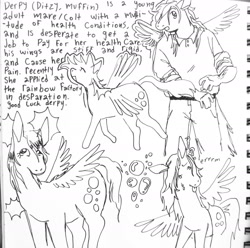 Derpy (Ditz), muffin) is a young
adult mare/Colt with a Multi-
tude of health Conditions,
and is desperate to get a
Job to Pay For her health Care.
his wings are stiff and rigid,
and Cause her
Pain. recently
She applied at
the rainbow factory
in desparation.
good luck derpy.